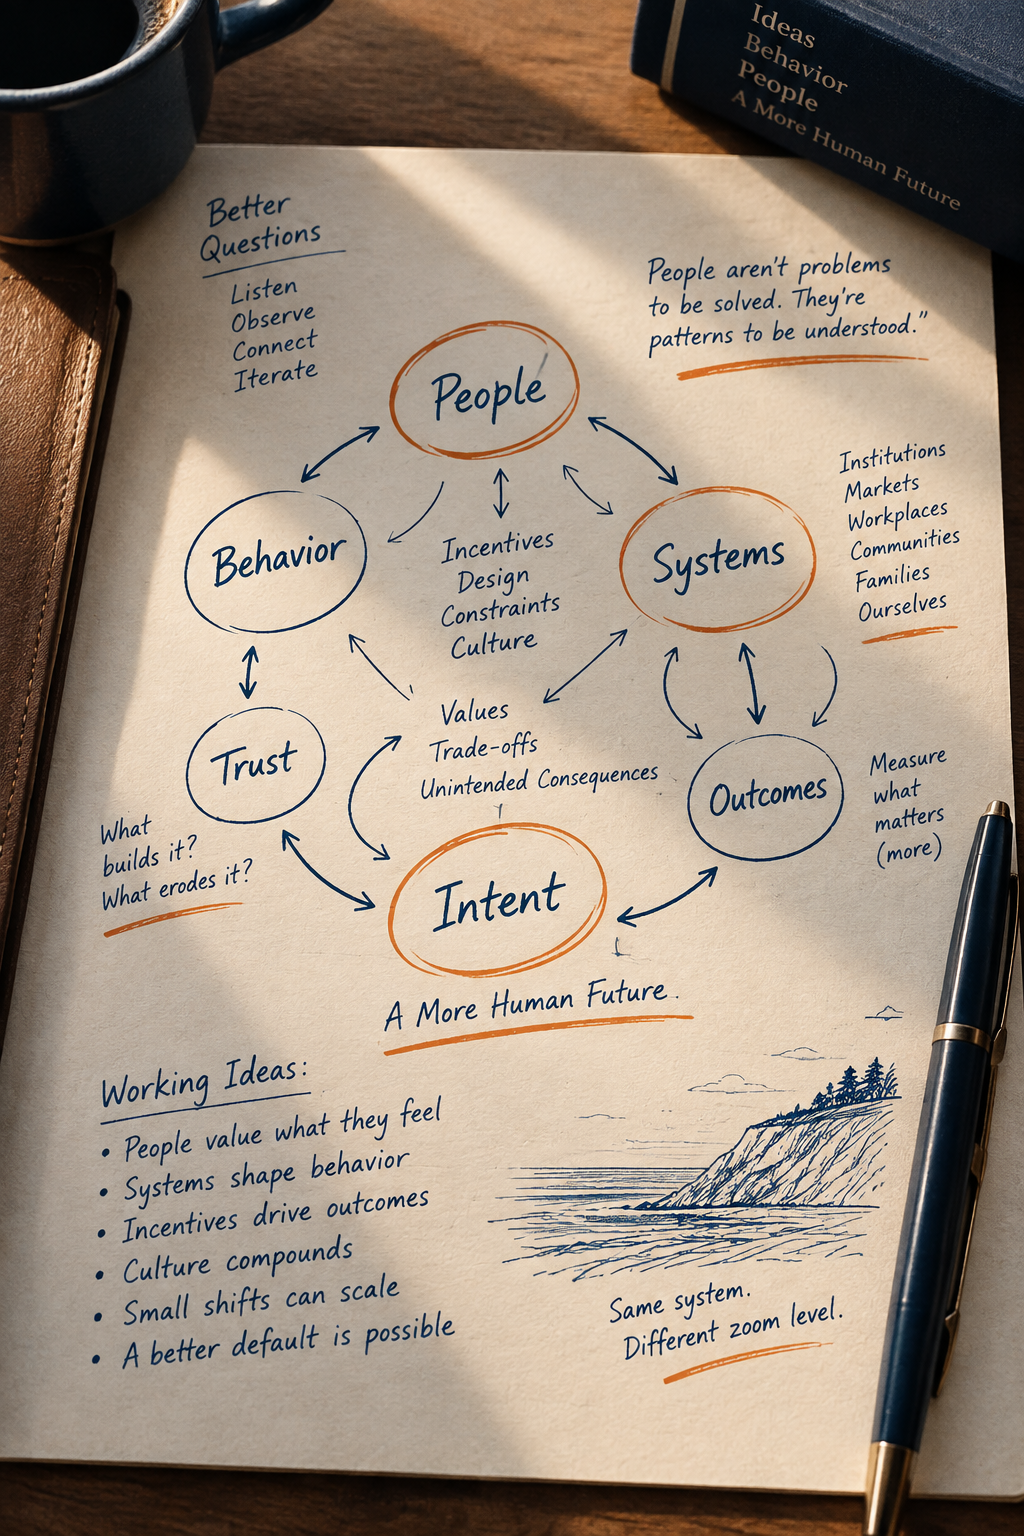 Ideas
Behavior
People
A More Human Future
Better
Questions
Listen
Observe
Connect
Iterate
People aren't problems
to be solved. They're
patterns to be understood."
People
Behavior
Systems
Incentives
Design
Constraints
Culture
Institutions
Markets
Workplaces
Communities
Families
Ourselves
Trust
Values
Trade-offs
Unintended Consequences
Outcomes
Measure
what
matters
(more)
What
builds it?
What erodes it?
Intent
A More Human Future.
Working Ideas:
• People value what they feel
• Systems shape behavior
• Incentives drive outcomes
• Culture compounds
• Small shifts can scale
• A better default is possible
Same system.
Different zoom level.